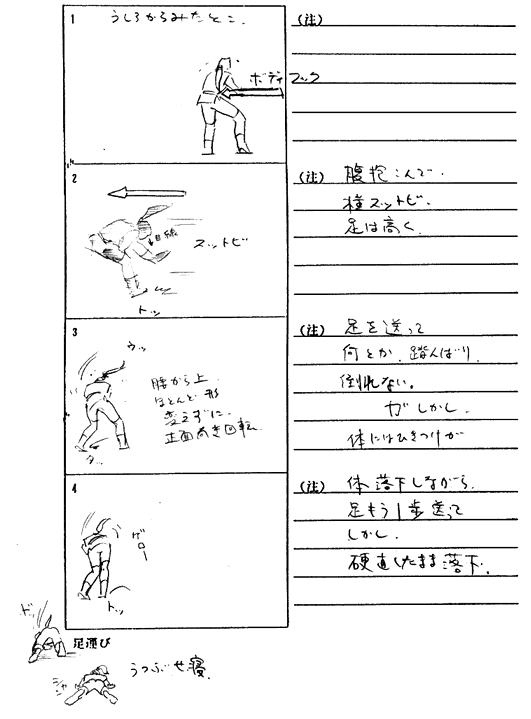 1
うしろからみたとこ.
ボディフック
(注)
2
目線
スットビ
トッ
(注) 腹抱こんで.
横スットビ.
足は高く.
3
ウッ
腰から上
ほとんど形
変えずに
正面向き回転.
タッ
(注) 足を送って
何とか.踏んばり.
倒れない。
ガしかし.
体にはひきつけが
4
ゲロー
トッ
(注) 体落下しながら.
足もう1歩送って
しかし.
硬直したまま落下.
ドッ
足運び
うつぶせ寝.